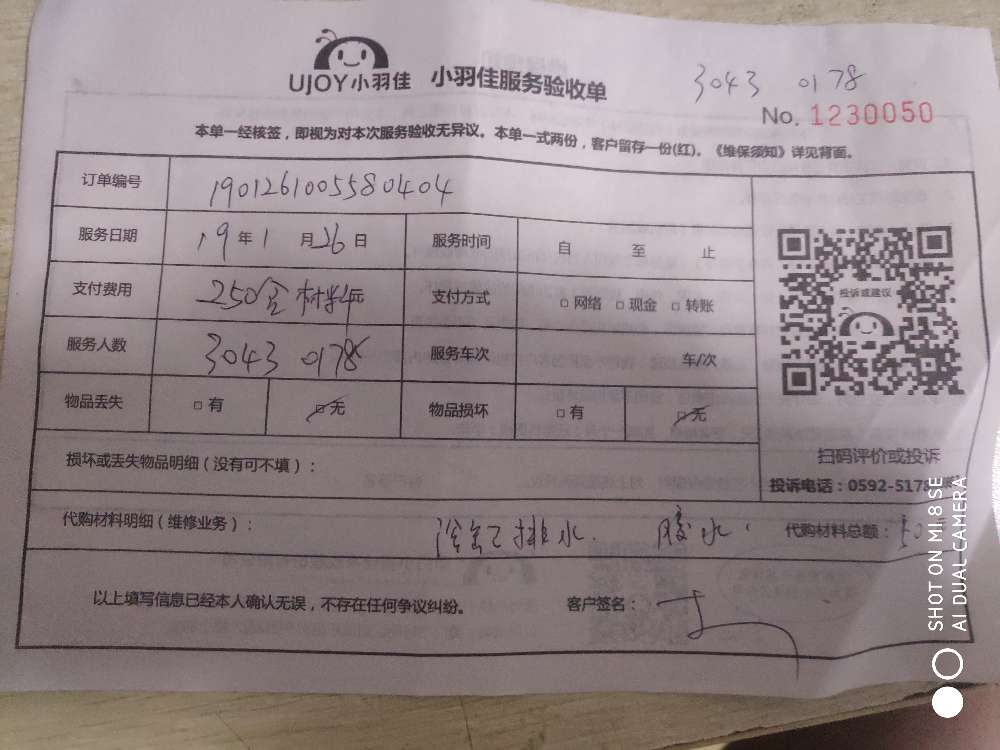 UJOY小羽佳 小羽佳服务验收单
3043 0178
No. 1230050
本单一经核签，即视为对本次服务验收无异议。本单一式两份，客户留存一份(红)。《维保须知》详见背面。
订单编号 190126100558 0404
服务日期 19 年 1 月 26 日 服务时间 自 至 止
支付费用 250 含材料 元 支付方式 □ 网络 □ 现金 □ 转账
服务人数 3043 0178 服务车次 车/次
投诉或建议
物品丢失 □ 有 □ 无 物品损坏 □ 有 □ 无
扫码评价或投诉
损坏或丢失物品明细（没有可不填）：
投诉电话：0592-5178
代购材料明细（维修业务）： 排水 胶水 代购材料总额：50
以上填写信息已经本人确认无误，不存在任何争议纠纷。 客户签名：
SHOT ON MI 8 SE
AI DUAL CAMERA